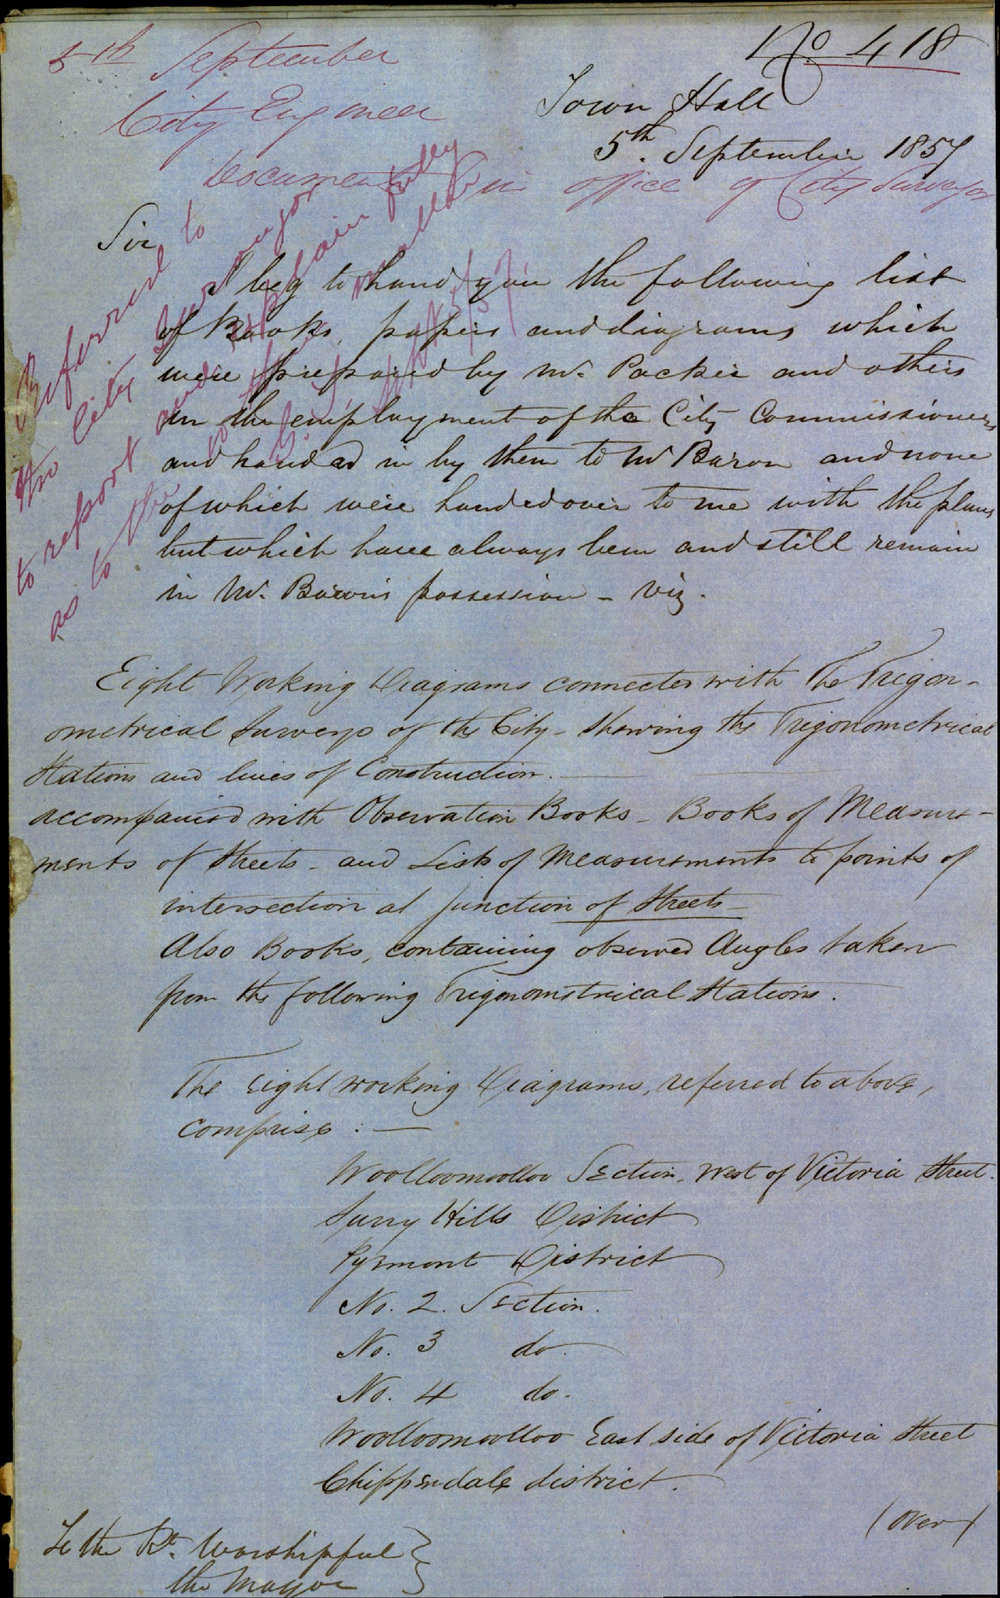 No 418
5th September
City Engineer
Documents in office of City Surveyor
Town Hall
5th. September 1857
Referred to
the City Surveyor
to report and explain fully
as to the
Sir
I beg to hand you the following list
of Books, papers and diagrams which
were prepared by Mr. Packer and others
in the employment of the City Commissioners
and handed in by them to Mr Baron and none
of which were handed over to me with the plans
but which have always been and still remain
in Mr. Baron's possession - viz.
Eight Working Diagrams connected with The Trigon-
ometrical Surveys of the City - shewing the Trigonometrical
Stations and lines of Construction.
accompanied with Observation Books - Books of Measure-
ments of Streets - and Lists of Measurements to points of
intersection at junction of Streets
Also Books, containing observed Angles taken
from the following Trigonometrical Stations.
The Eight working Diagrams, referred to above,
comprise : —
Woolloomoolloo Section, West of Victoria Street.
Surry Hills District
Pyrmont District
No. 2. Section.
No. 3 do.
No. 4 do.
Woolloomoolloo East side of Victoria Street
Chippendale district.
(over)
To the Rt. Worshipful
the Mayor